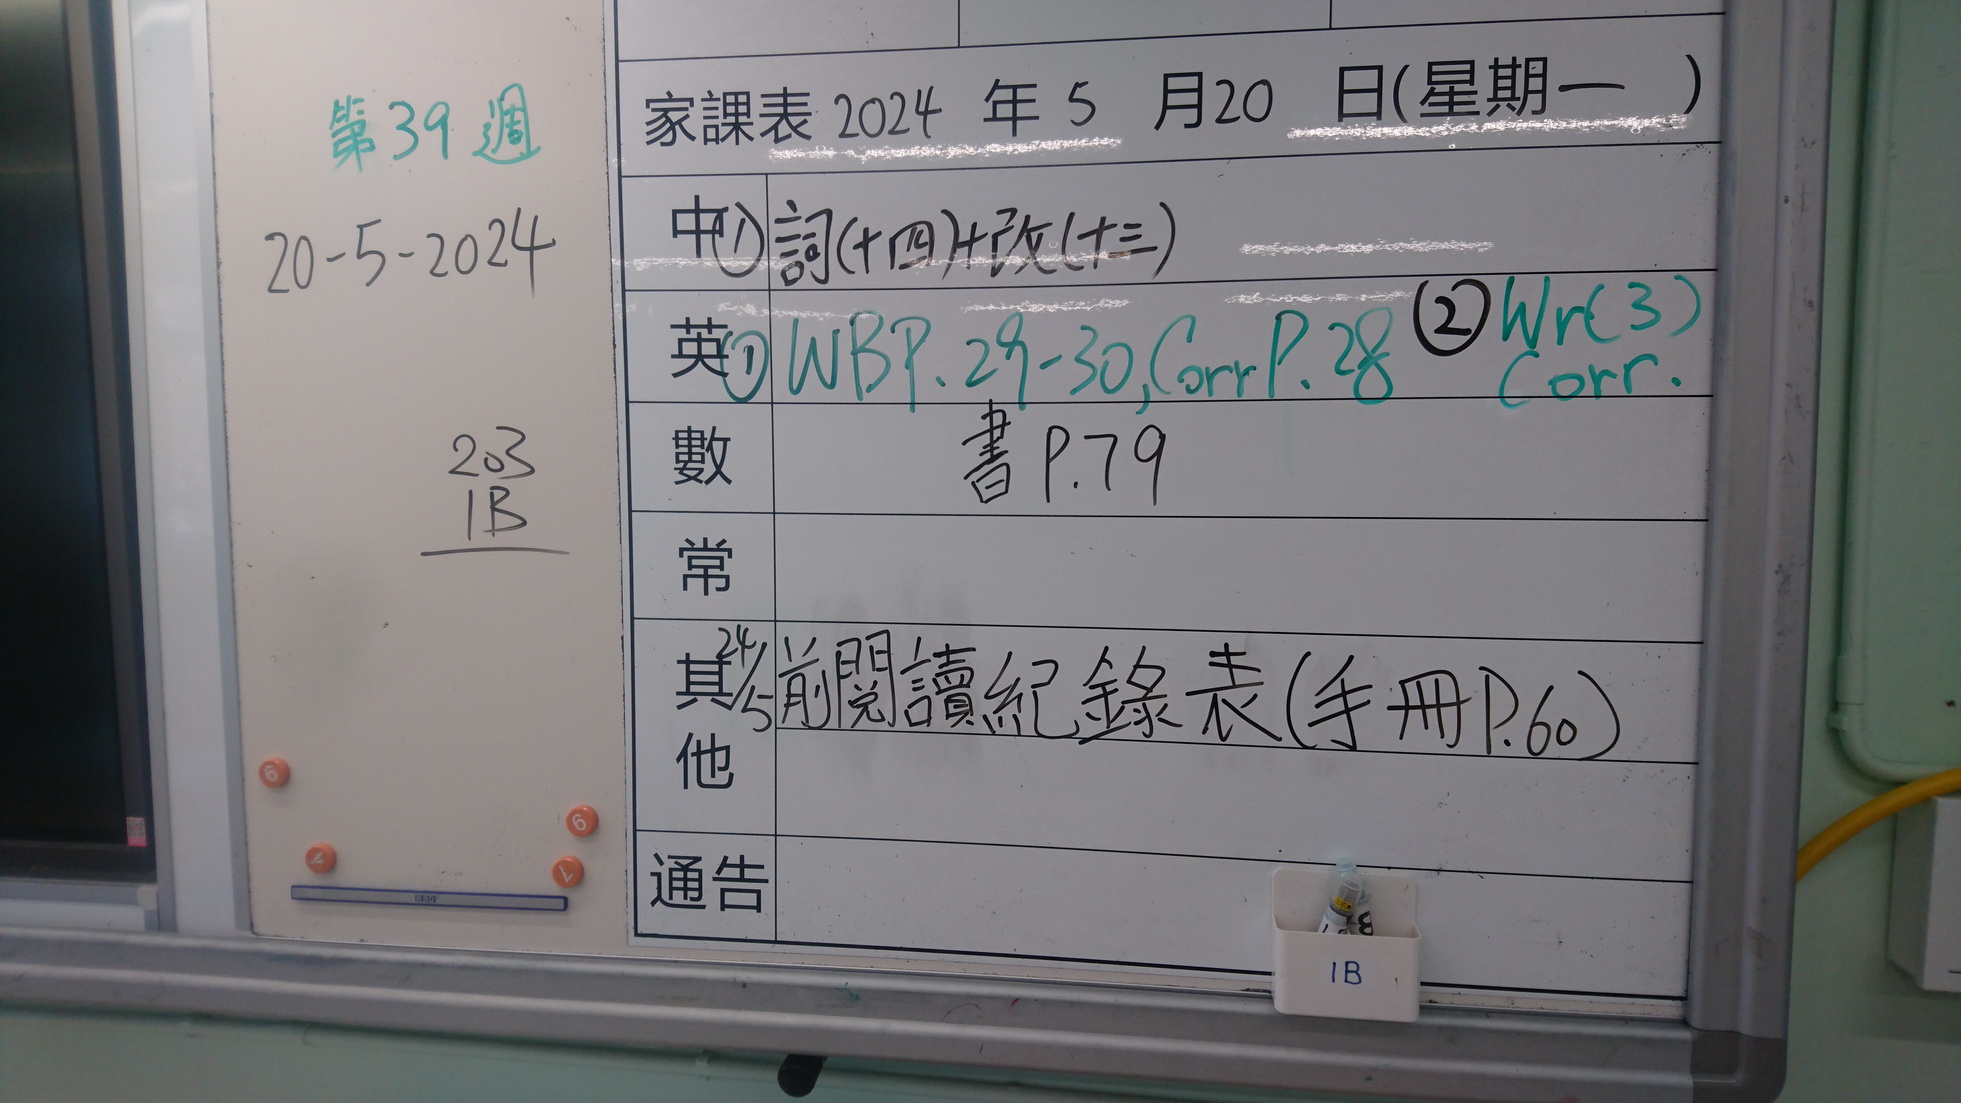 第39週
20-5-2024
203
1B
家課表 2024 年 5 月 20 日(星期一 )
中 ① 詞(十四)+改(十三)
英 ① WB P. 29-30, Corr P. 28 ② Wr(3) Corr.
數 書 P.79
常
其他 24/5 前閱讀紀錄表(手冊P.60)
通告
1B